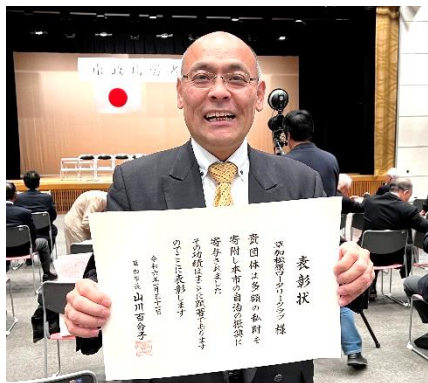 市政功労者
表彰状
草加松原ロータリークラブ 様
貴団体は多額の私財を
寄附し本市の自治の振興に
寄与されました
その功績はまことに顕著であります
のでここに表彰します
令和六年
草加市長 山川百合子